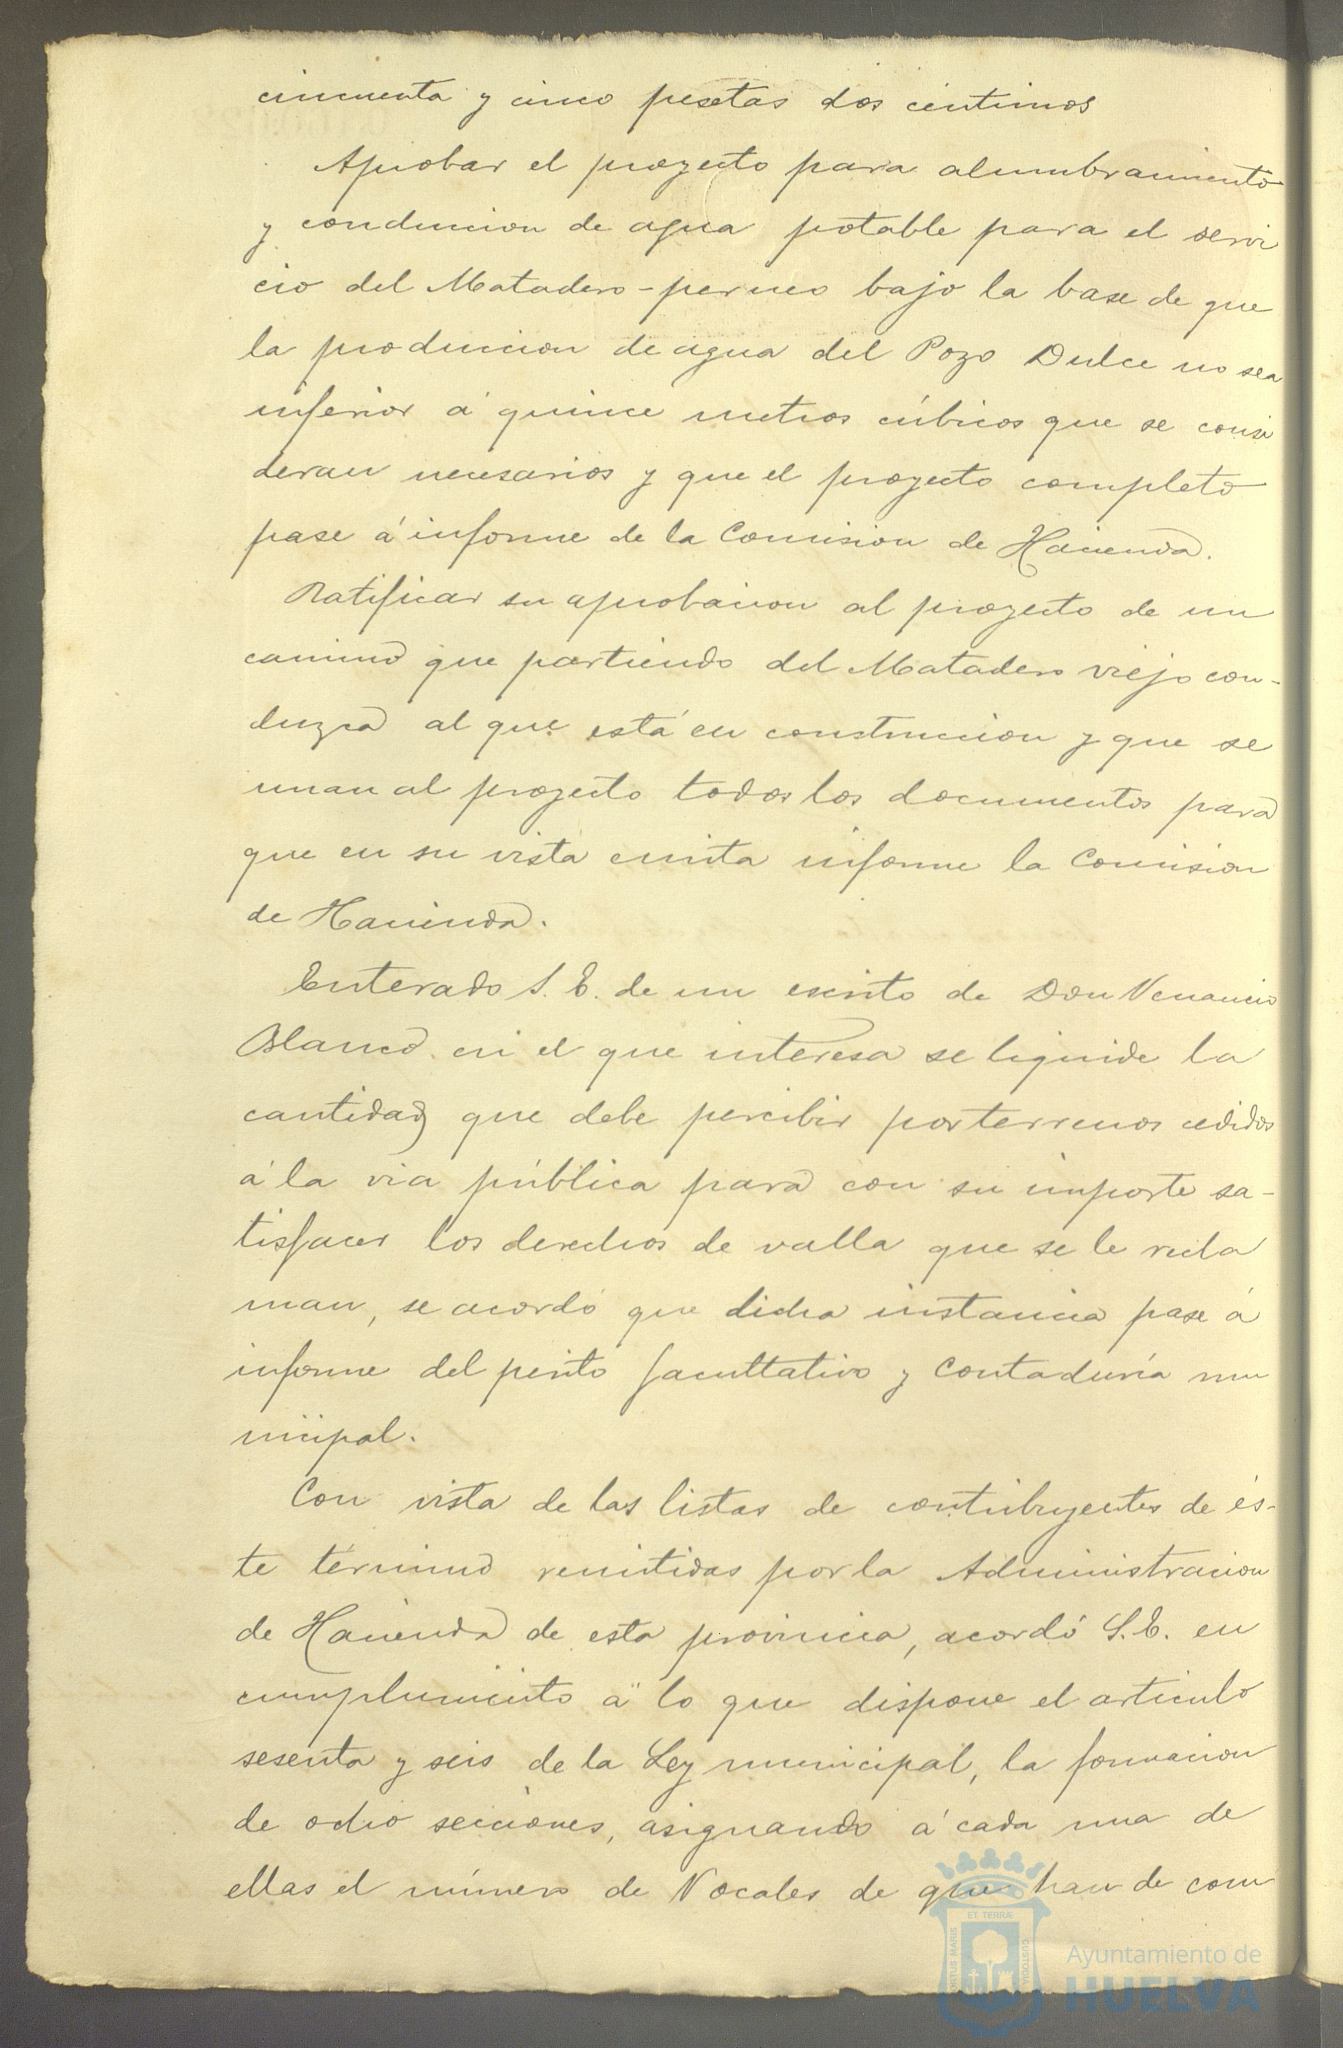 cincuenta y cinco pesetas dos centimos
Aprobar el proyecto para alumbramiento
y conduccion de agua potable para el servi
cio del Matadero-perneo bajo la base de que
la produccion de agua del Pozo Dulce no sea
inferior á quince metros cúbicos que se consi
deran necesarios y que el proyecto completo
pase á informe de la Comision de Hacienda.
Ratificar su aprobacion al proyecto de un
camino que partiendo del Matadero viejo con-
duzca al que está en construccion y que se
unan al proyecto todos los documentos para
que en su vista emita informe la Comision
de Hacienda.
Enterado S. E. de un escrito de Don Venancio
Blanco en el que interesa se liquide la
cantidad que debe percibir por terrenos cedidos
á la via pública para con su importe sa-
tisfacer los derechos de valla que se le recla
man, se acordó que dicha instancia pase á
informe del perito facultativo y Contaduría mu
nicipal.
Con vista de las listas de contribuyentes de és-
te término remitidas por la Administracion
de Hacienda de esta provincia, acordó S. E. en
cumplimiento á lo que dispone el articulo
sesenta y seis de la Ley municipal, la formacion
de ocho secciones, asignando á cada una de
ellas el número de Vocales de que han de com
ET TERRÆ
PORTUS MARIS
CUSTODIA
Ayuntamiento de
HUELVA